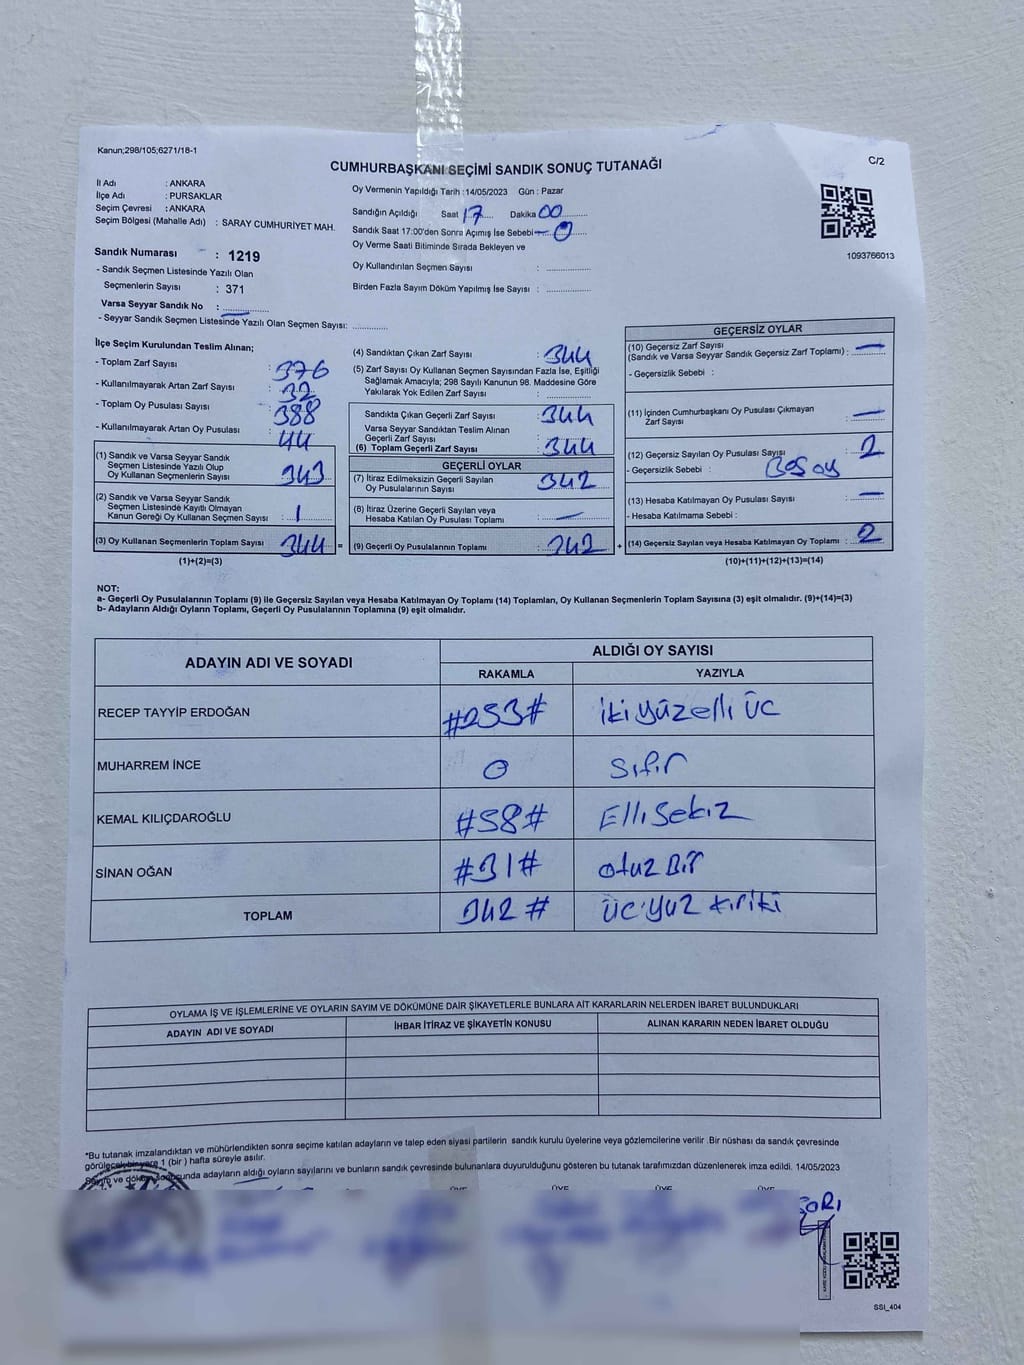 Kanun;298/105;6271/18-1
CUMHURBAŞKANI SEÇİMİ SANDIK SONUÇ TUTANAĞI
C/2
İl Adı : ANKARA
İlçe Adı : PURSAKLAR
Seçim Çevresi : ANKARA
Seçim Bölgesi (Mahalle Adı) : SARAY CUMHURİYET MAH.
Oy Vermenin Yapıldığı Tarih :14/05/2023 Gün : Pazar
Sandığın Açıldığı Saat 17 Dakika 00
Sandık Saat 17:00'den Sonra Açımış İse Sebebi
Oy Verme Saati Bitiminde Sırada Bekleyen ve
Oy Kullandırılan Seçmen Sayısı :
Birden Fazla Sayım Döküm Yapılmış İse Sayısı :
1093766013
Sandık Numarası : 1219
- Sandık Seçmen Listesinde Yazılı Olan
Seçmenlerin Sayısı : 371
Varsa Seyyar Sandık No : —
- Seyyar Sandık Seçmen Listesinde Yazılı Olan Seçmen Sayısı:
İlçe Seçim Kurulundan Teslim Alınan;
- Toplam Zarf Sayısı : 376
- Kullanılmayarak Artan Zarf Sayısı : 32
- Toplam Oy Pusulası Sayısı : 388
- Kullanılmayarak Artan Oy Pusulası : 44
(1) Sandık ve Varsa Seyyar Sandık
Seçmen Listesinde Yazılı Olup
Oy Kullanan Seçmenlerin Sayısı : 343
(2) Sandık ve Varsa Seyyar Sandık
Seçmen Listesinde Kayıtlı Olmayan
Kanun Gereği Oy Kullanan Seçmen Sayısı : 1
(3) Oy Kullanan Seçmenlerin Toplam Sayısı : 344 =
(1)+(2)=(3)
(4) Sandıktan Çıkan Zarf Sayısı : 344
(5) Zarf Sayısı Oy Kullanan Seçmen Sayısından Fazla İse, Eşitliği
Sağlamak Amacıyla; 298 Sayılı Kanunun 98. Maddesine Göre
Yakılarak Yok Edilen Zarf Sayısı :
Sandıkta Çıkan Geçerli Zarf Sayısı : 344
Varsa Seyyar Sandıktan Teslim Alınan
Geçerli Zarf Sayısı :
(6) Toplam Geçerli Zarf Sayısı : 344
GEÇERLİ OYLAR
(7) İtiraz Edilmeksizin Geçerli Sayılan
Oy Pusulalarının Sayısı : 342
(8) İtiraz Üzerine Geçerli Sayılan veya
Hesaba Katılan Oy Pusulası Toplamı : —
(9) Geçerli Oy Pusulalarının Toplamı : 342 +
GEÇERSİZ OYLAR
(10) Geçersiz Zarf Sayısı
(Sandık ve Varsa Seyyar Sandık Geçersiz Zarf Toplamı) : —
- Geçersizlik Sebebi :
(11) İçinden Cumhurbaşkanı Oy Pusulası Çıkmayan
Zarf Sayısı : —
(12) Geçersiz Sayılan Oy Pusulası Sayısı : 2
- Geçersizlik Sebebi : Boş oy
(13) Hesaba Katılmayan Oy Pusulası Sayısı : —
- Hesaba Katılmama Sebebi :
(14) Geçersiz Sayılan veya Hesaba Katılmayan Oy Toplamı : 2
(10)+(11)+(12)+(13)=(14)
NOT:
a- Geçerli Oy Pusulalarının Toplamı (9) ile Geçersiz Sayılan veya Hesaba Katılmayan Oy Toplamı (14) Toplamları, Oy Kullanan Seçmenlerin Toplam Sayısına (3) eşit olmalıdır. (9)+(14)=(3)
b- Adayların Aldığı Oyların Toplamı, Geçerli Oy Pusulalarının Toplamına (9) eşit olmalıdır.
ADAYIN ADI VE SOYADI
ALDIĞI OY SAYISI
RAKAMLA YAZIYLA
RECEP TAYYİP ERDOĞAN #253# İki yüzelli üc
MUHARREM İNCE 0 Sıfır
KEMAL KILIÇDAROĞLU #58# Elli sekiz
SİNAN OĞAN #31# otuz Bir
TOPLAM 342# üc yuz kırıki
OYLAMA İŞ VE İŞLEMLERİNE VE OYLARIN SAYIM VE DÖKÜMÜNE DAİR ŞİKAYETLERLE BUNLARA AİT KARARLARIN NELERDEN İBARET BULUNDUKLARI
ADAYIN ADI VE SOYADI İHBAR İTİRAZ VE ŞİKAYETİN KONUSU ALINAN KARARIN NEDEN İBARET OLDUĞU
*Bu tutanak imzalandıktan ve mühürlendikten sonra seçime katılan adayların ve talep eden siyasi partilerin sandık kurulu üyelerine veya gözlemcilerine verilir .Bir nüshası da sandık çevresinde
görülecek bir yere 1 (bir ) hafta süreyle asılır.
Sayım ve döküm sonucunda adayların aldığı oyların sayılarını ve bunların sandık çevresinde bulunanlara duyurulduğunu gösteren bu tutanak tarafımızdan düzenlenerek imza edildi. 14/05/2023
ÜYE ÜYE ÜYE ÜYE
SSI_404